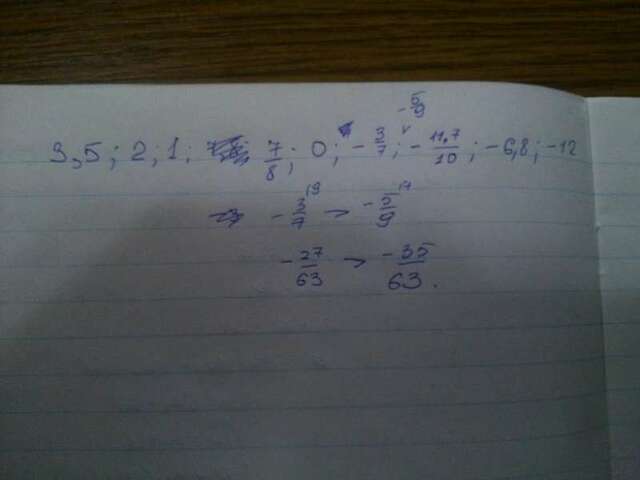 -5/9
3,5; 2,1; 7/8; 0; -3/7; -11,7/10; -6,8; -12
-3/7 |9 > -5/9 |7
-27/63 > -35/63.